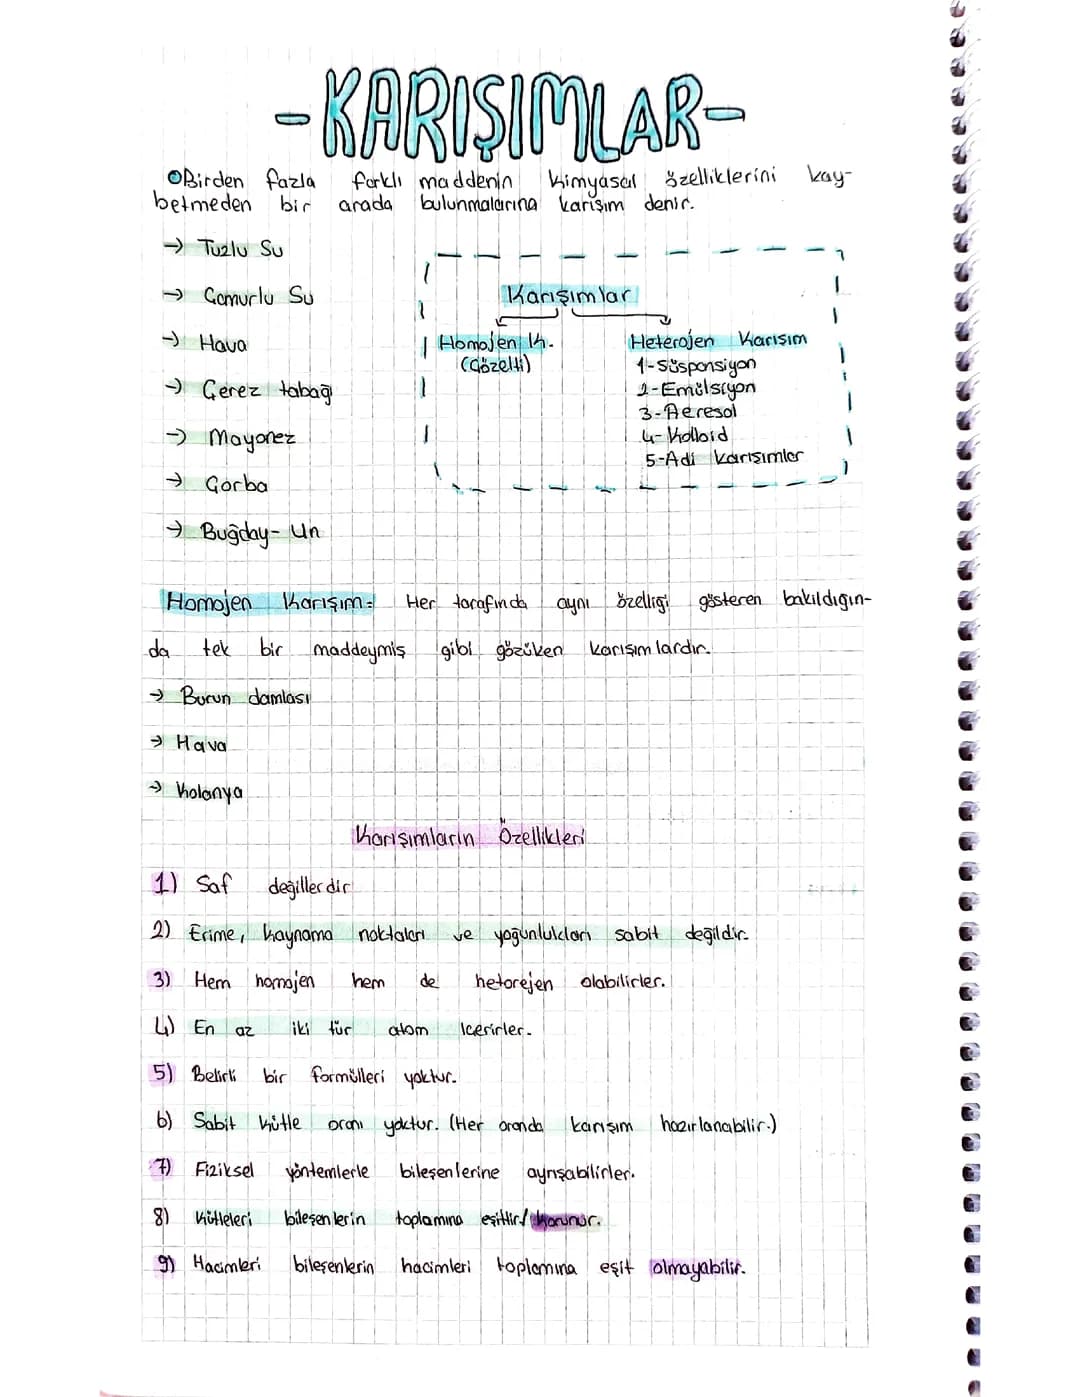 -KARIŞIMLAR-
Birden fazla farklı maddenin kimyasal özelliklerini kay-
betmeden bir arada bulunmalarına karışım denir.
→ Tuzlu Su
→ Çamurlu Su
→ Hava
→ Çerez tabağı
→ Mayonez
→ Çorba
→ Buğday-Un
Karışımlar
Homojen K.
(Çözelti)
Heterojen Karışım
1-Süsponsiyon
2-Emülsiyon
3-Aeresol
4-Kolloid
5-Adi karışımlar
Homojen Karışım= Her tarafında aynı özelliği gösteren bakıldığın-
da tek bir maddeymiş gibi gözüken karışımlardır.
→ Burun damlası
→ Hava
→ Kolonya
Karışımların Özellikleri
1) Saf değillerdir
2) Erime, kaynama noktaları ve yoğunlukları sabit değildir.
3) Hem homojen hem de hetorejen olabilirler.
4) En az iki tür atom içerirler.
5) Belirli bir formülleri yoktur.
6) Sabit kütle oranı yoktur. (Her oranda karışım hazırlanabilir.)
7) Fiziksel yöntemlerle bileşenlerine ayrışabilirler.
8) Kütleleri bileşenlerin toplamına eşittir/korunur.
9) Hacimleri bileşenlerin hacimleri toplamına eşit olmayabilir.